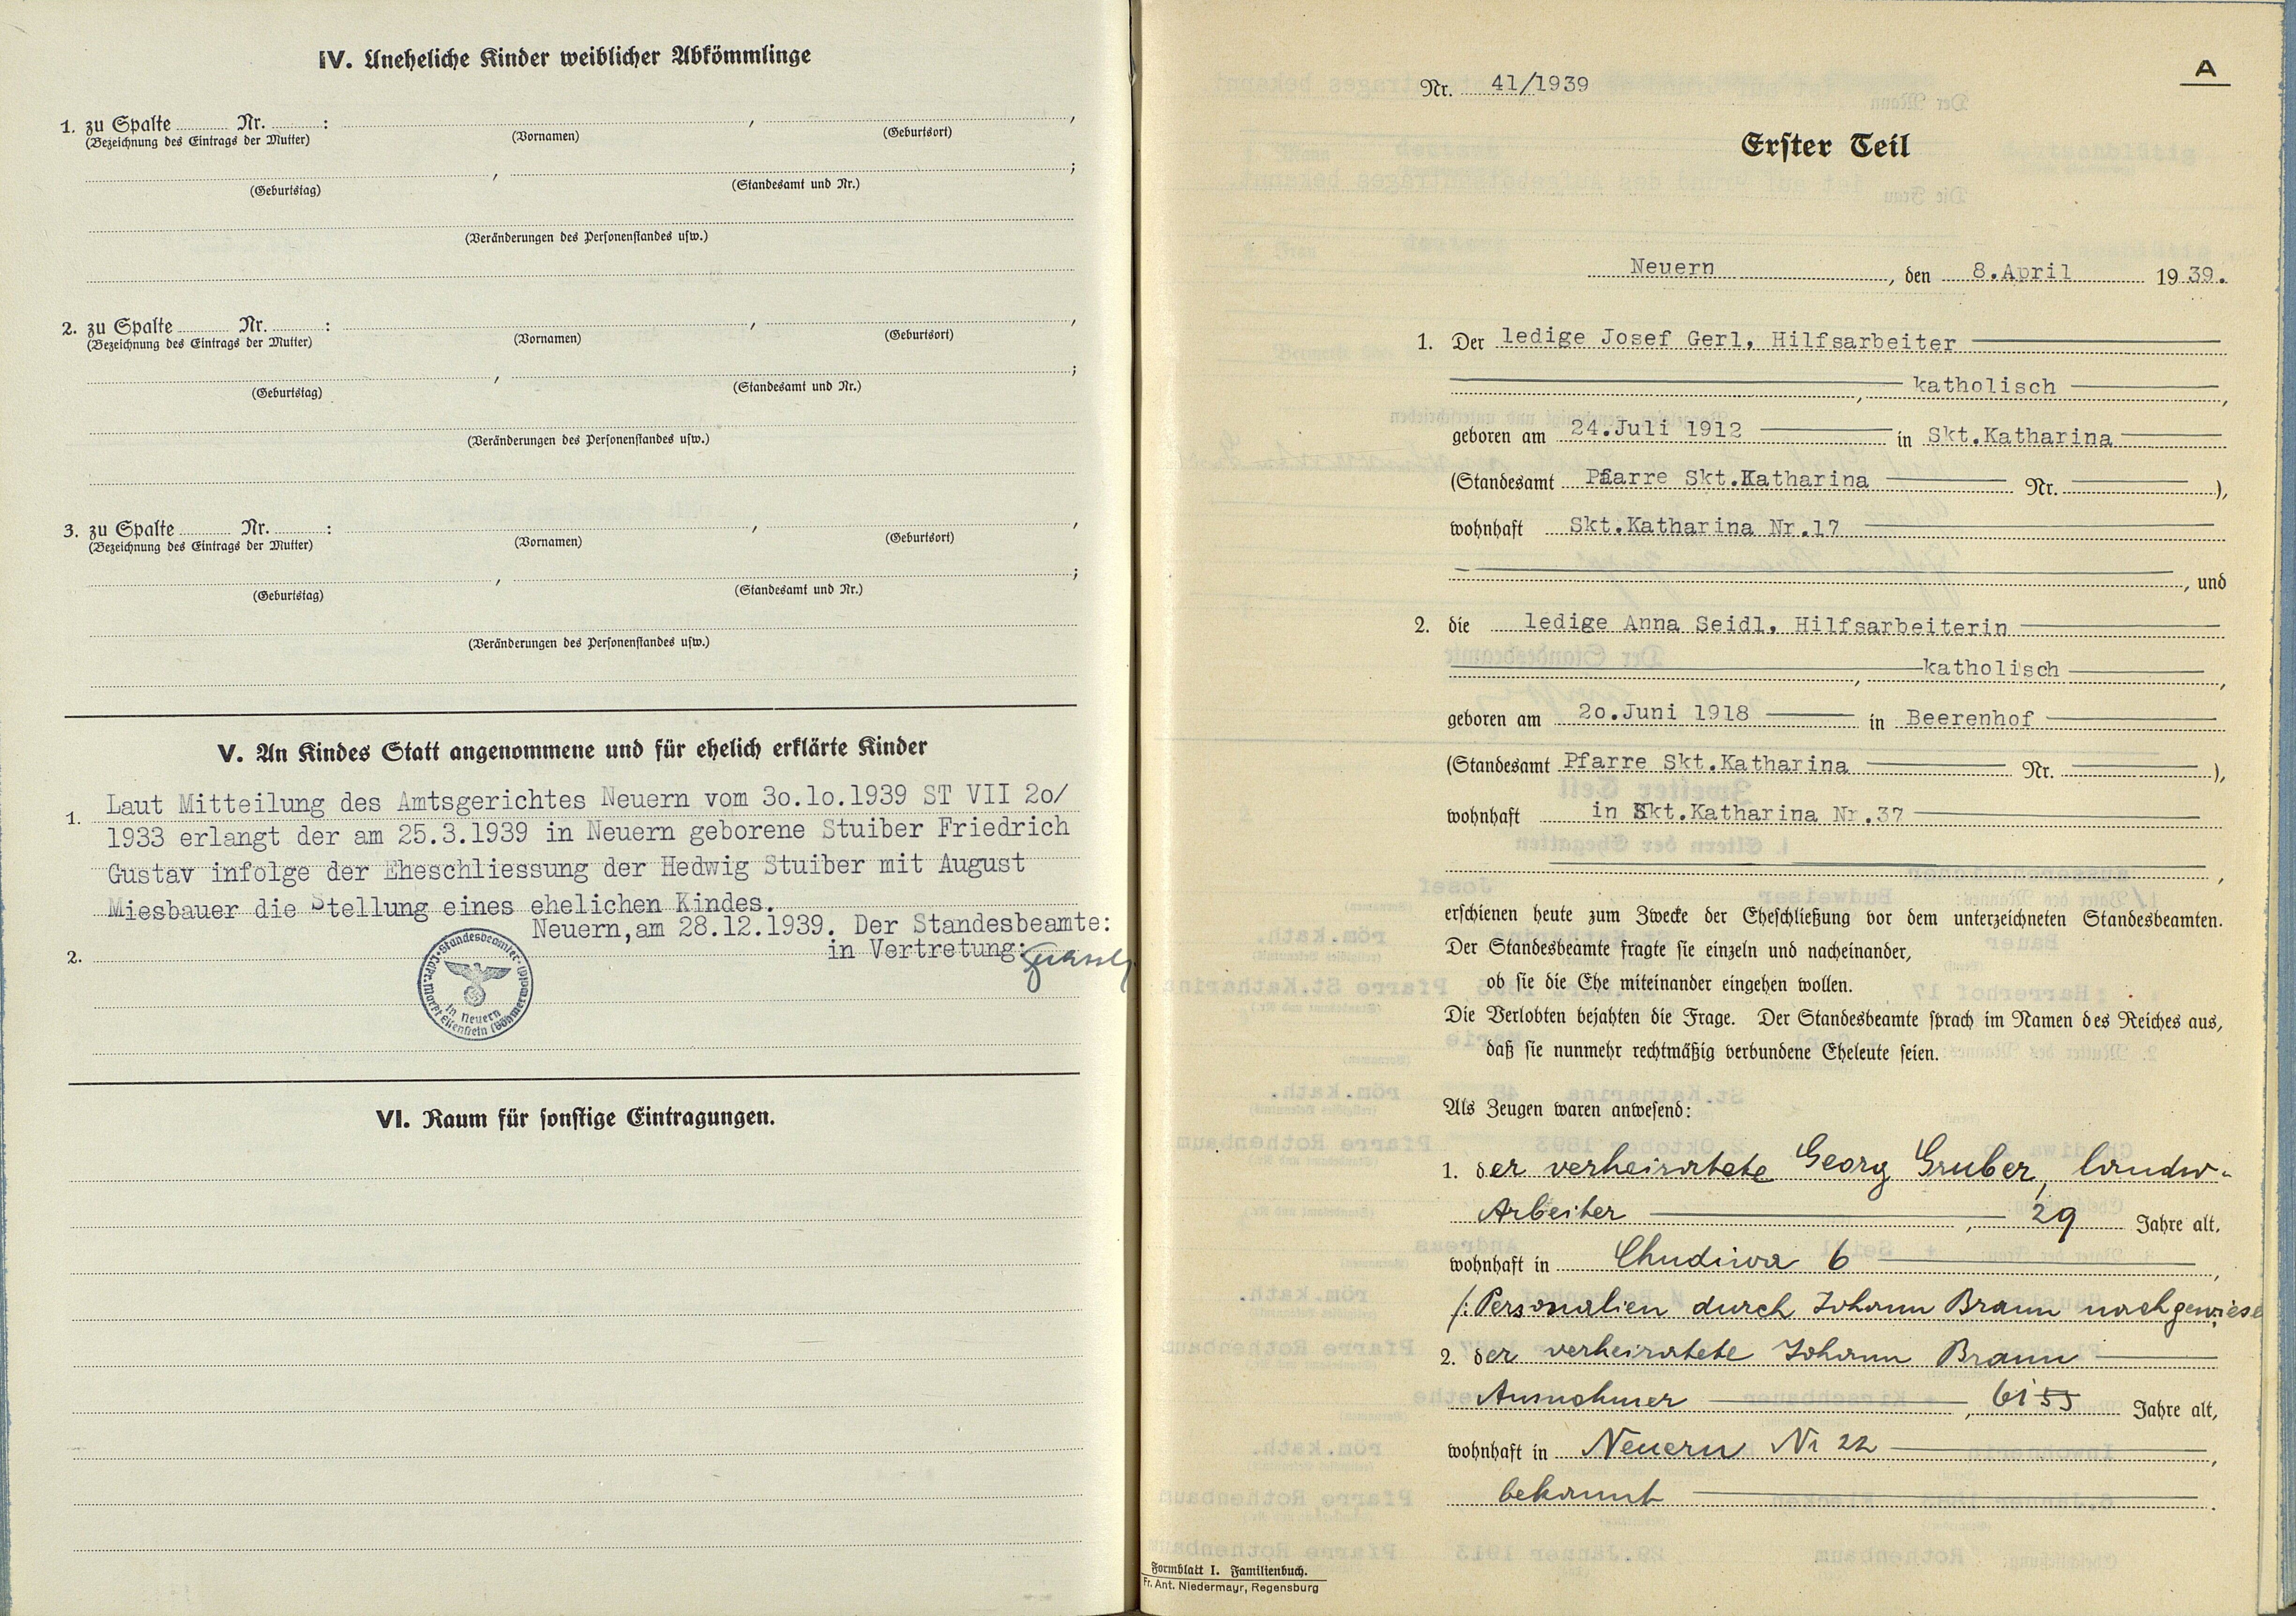 IV. Uneheliche Kinder weiblicher Abkömmlinge
1. zu Spalte ........ Nr. ........ : , ,
(Bezeichnung des Eintrags der Mutter) (Vornamen) (Geburtsort)
, ;
(Geburtstag) (Standesamt und Nr.)
(Veränderungen des Personenstandes usw.)
2. zu Spalte ........ Nr. ........ : , ,
(Bezeichnung des Eintrags der Mutter) (Vornamen) (Geburtsort)
, ;
(Geburtstag) (Standesamt und Nr.)
(Veränderungen des Personenstandes usw.)
3. zu Spalte ........ Nr. ........ : , ,
(Bezeichnung des Eintrags der Mutter) (Vornamen) (Geburtsort)
, ;
(Geburtstag) (Standesamt und Nr.)
(Veränderungen des Personenstandes usw.)
V. An Kindes Statt angenommene und für ehelich erklärte Kinder
1. Laut Mitteilung des Amtsgerichtes Neuern vom 3o.1o.1939 ST VII 2o/
1933 erlangt der am 25.3.1939 in Neuern geborene Stuiber Friedrich
Gustav infolge der Eheschliessung der Hedwig Stuiber mit August
Miesbauer die Stellung eines ehelichen Kindes.
Neuern,am 28.12.1939. Der Standesbeamte:
2. in Vertretung:
Standesbeamter
in Neuern
Markt Eisenstein (Böhmerwald)
VI. Raum für sonstige Eintragungen.
A
Nr. 41/1939
Erster Teil
Neuern, den 8.April 19 39.
1. Der ledige Josef Gerl, Hilfsarbeiter
, katholisch ,
geboren am 24.Juli 1912 in Skt.Katharina
(Standesamt Pfarre Skt.Katharina Nr. ),
wohnhaft Skt.Katharina Nr.17
, und
2. die ledige Anna Seidl, Hilfsarbeiterin
, katholisch ,
geboren am 2o.Juni 1918 in Beerenhof
(Standesamt Pfarre Skt.Katharina Nr. ),
wohnhaft in Skt.Katharina Nr.37
,
erschienen heute zum Zwecke der Eheschließung vor dem unterzeichneten Standesbeamten.
Der Standesbeamte fragte sie einzeln und nacheinander,
ob sie die Ehe miteinander eingehen wollen.
Die Verlobten bejahten die Frage. Der Standesbeamte sprach im Namen des Reiches aus,
daß sie nunmehr rechtmäßig verbundene Eheleute seien.
Als Zeugen waren anwesend:
1. der verheiratete Georg Gruber, landw.
Arbeiter , 29 Jahre alt,
wohnhaft in Chudiwa 6 ,
/: Personalien durch Johann Braun nachgewiese
2. der verheiratete Johann Braun
Ausnahmer , 61 55 Jahre alt,
wohnhaft in Neuern Nr 22 ,
bekannt .
Formblatt I. Familienbuch.
Fr. Ant. Niedermayr, Regensburg